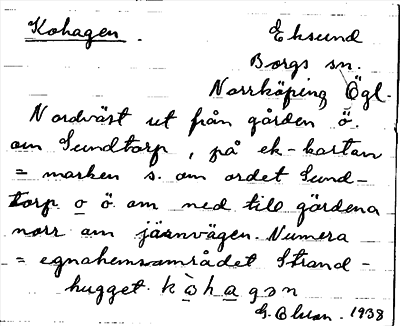 Kohagen.
Eksund
Borgs sn.
Norrköping Ögl.
Nordväst ut från gården ö.
om Sundtorp, på ek-kartan
= marken s. om ordet Sund-
torp o ö. om ned till gärdena
norr om järnvägen. Numera
= egnahemsområdet Strand-
hugget. kòhagən
G. Olson. 1938